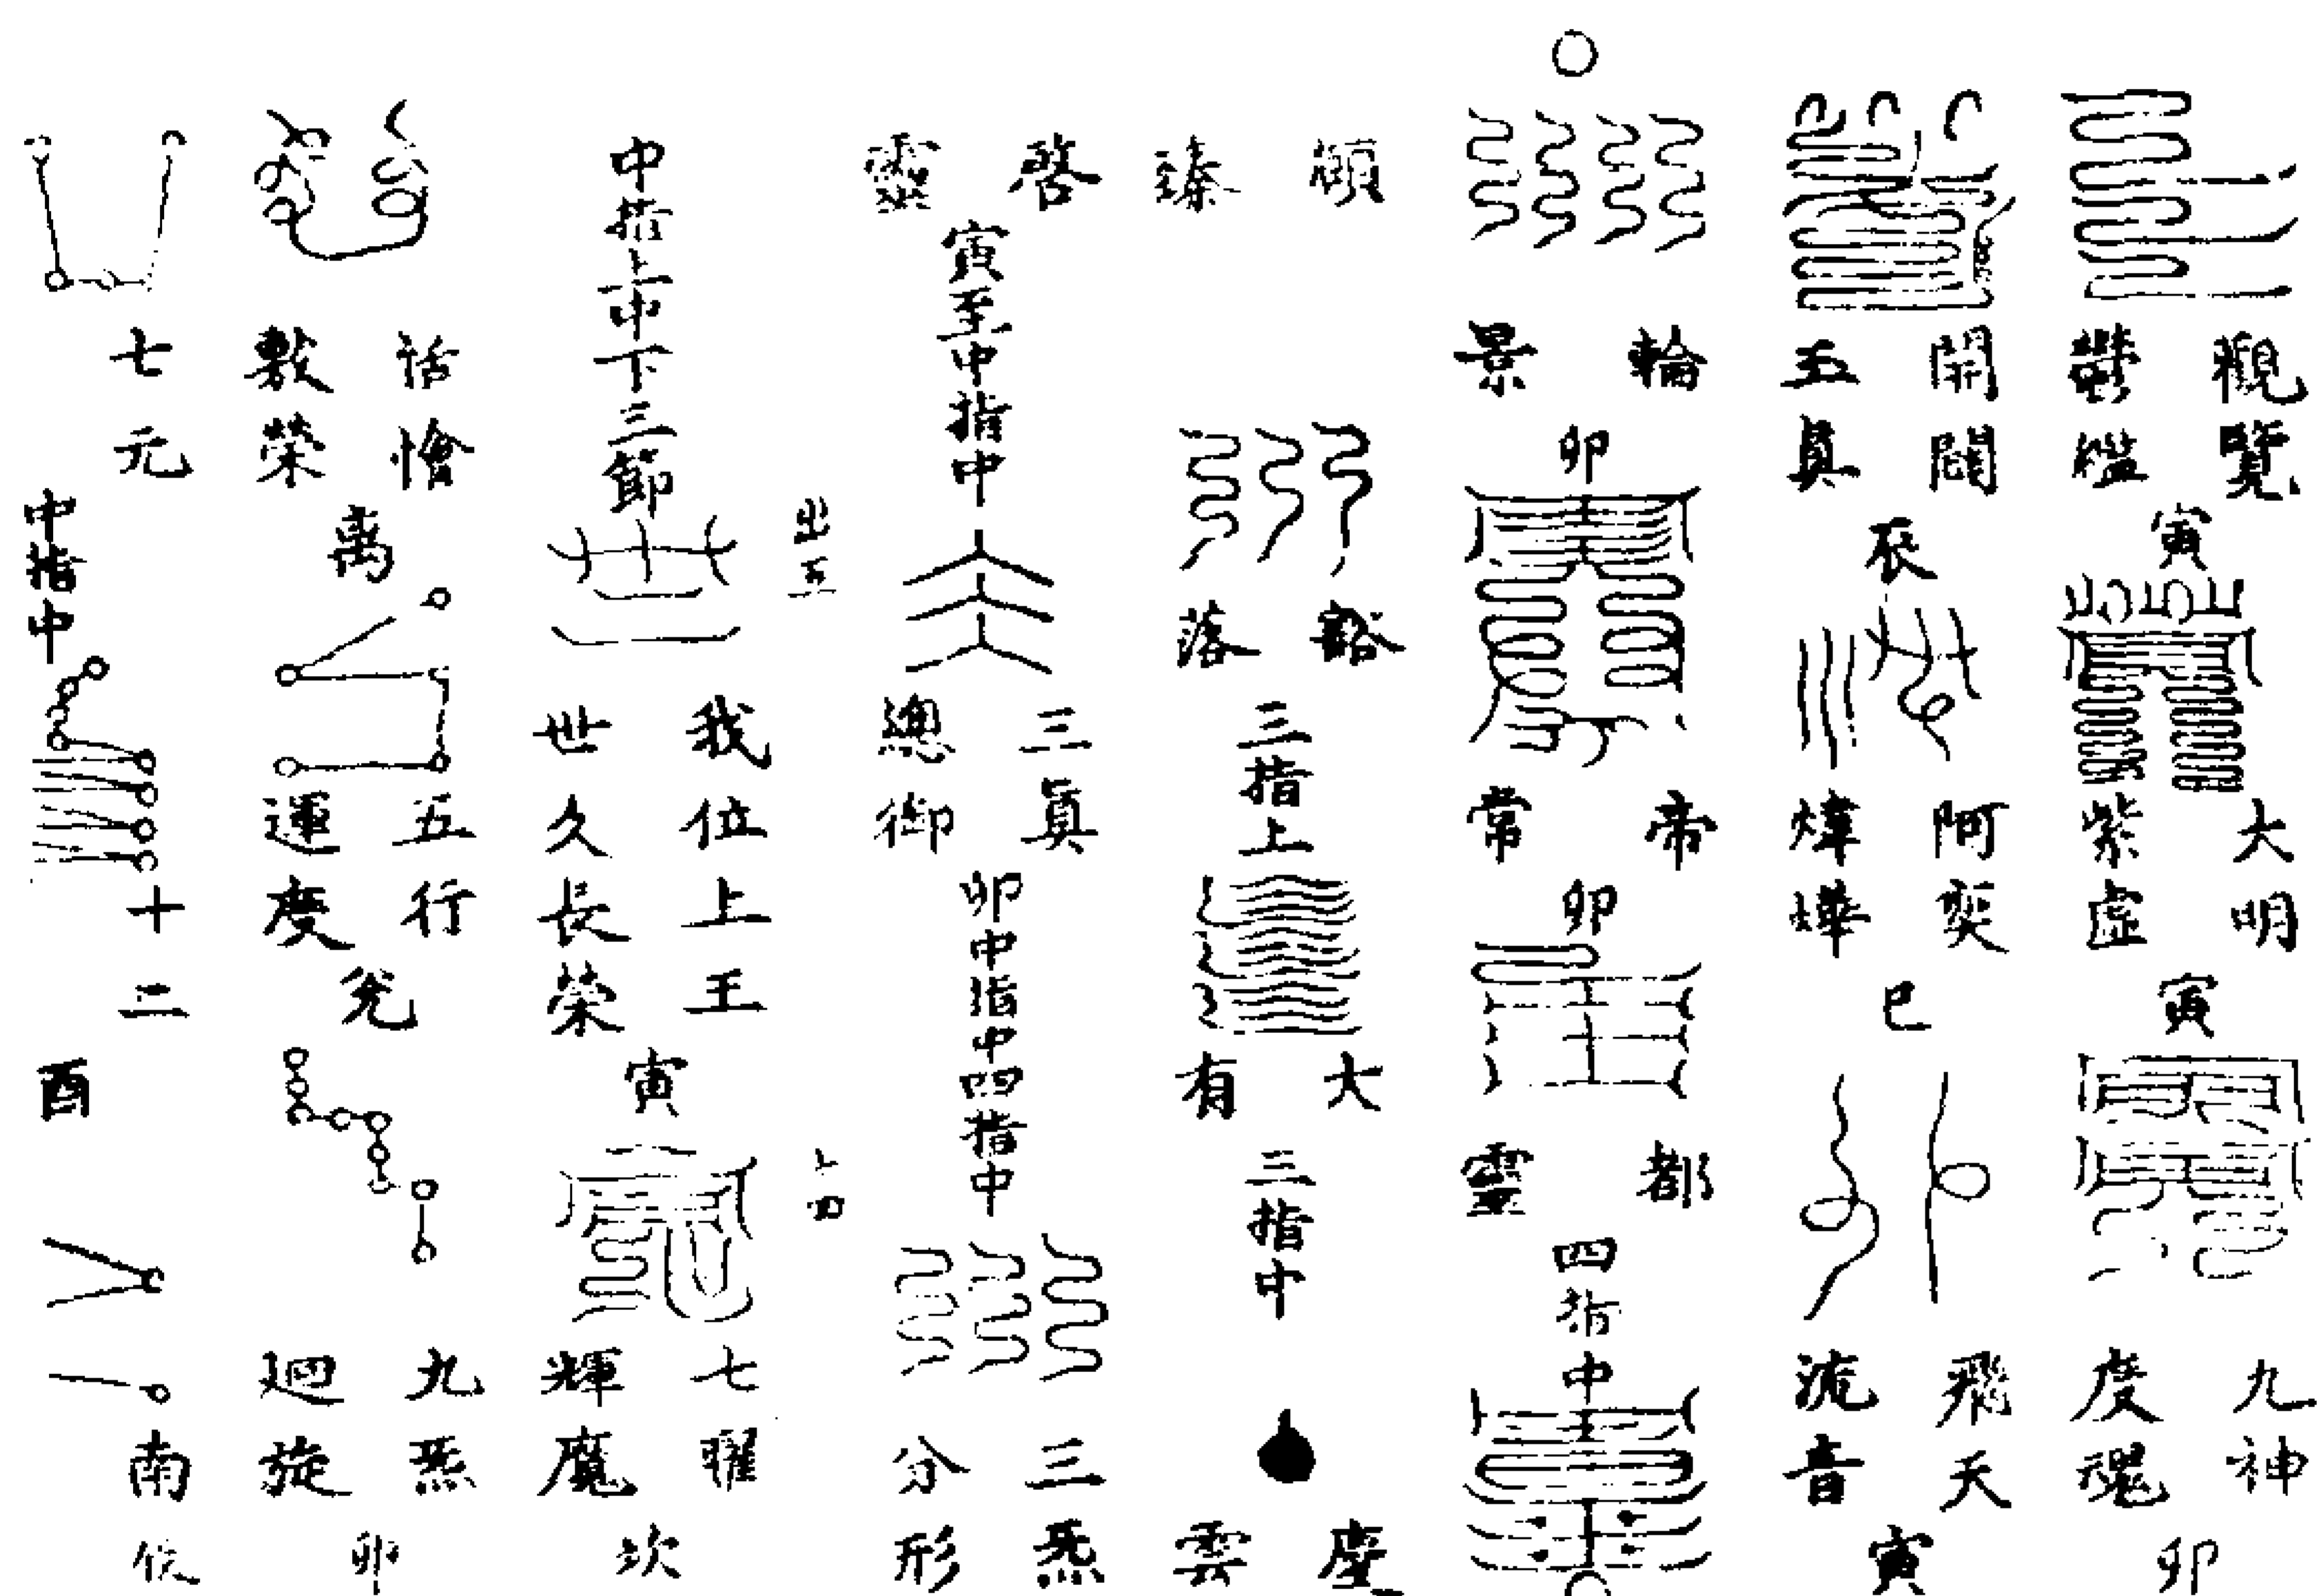 觀覽
欎嵫
寅
大明
紫虛
寅
九神
度魂
卯
開闓
五真
辰
阿奕
煒燁
巳
飛天
流音
寅
輪
景
卯
帝
常
卯
都
靈
四指中
頎
臻
豁
落
三指上
大
有
三指中
慶
雲
啓
靈
寅至中指中
三真
總御
卯中指中四指中
三炁
分形
出五
上四
中指上中下三節
我位上王
世久長榮
寅
七曜
輝魔
坎
恬憺
敷榮
离
五行
運度
兌
九炁
迴旋
卯
七元
中指中
十二
酉
南